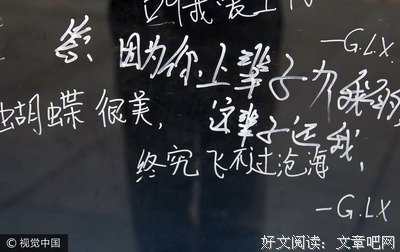 答: 因为你上辈子欠我的
—G.L.X.
蝴蝶很美, 这辈子还我,
终究飞不过沧海,
—G.L.X
视觉中国
好文阅读: 文章吧网